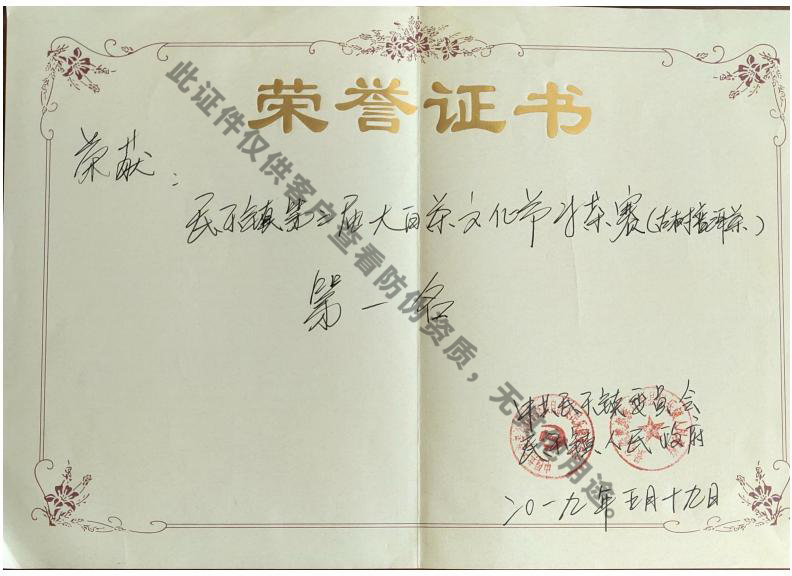 荣誉证书
荣获：
民乐镇第三届大白茶文化节斗茶赛(古树普洱茶)
第一名
中共民乐镇委员会
民乐镇人民政府
二〇一九年五月十九日
此证件仅供客户查看防伪资质，无其他用途。